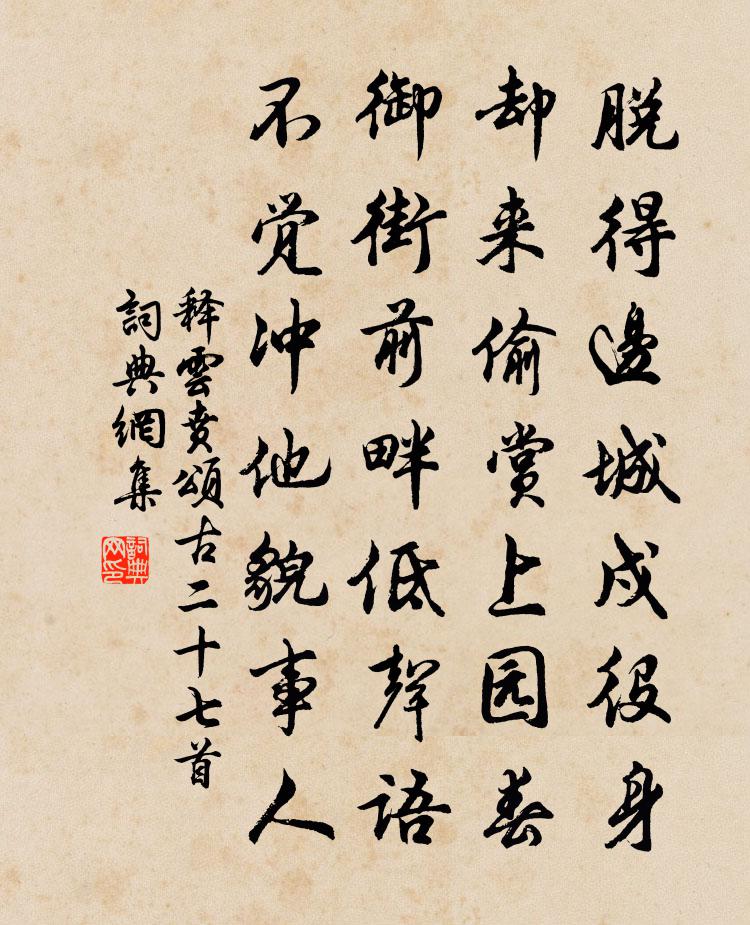 脱得邊城戍役身
却来偷賞上园春
御街前畔低聲語
不觉冲他貌事人
释雲賁頌古二十七首
詞典網集
詞典网印